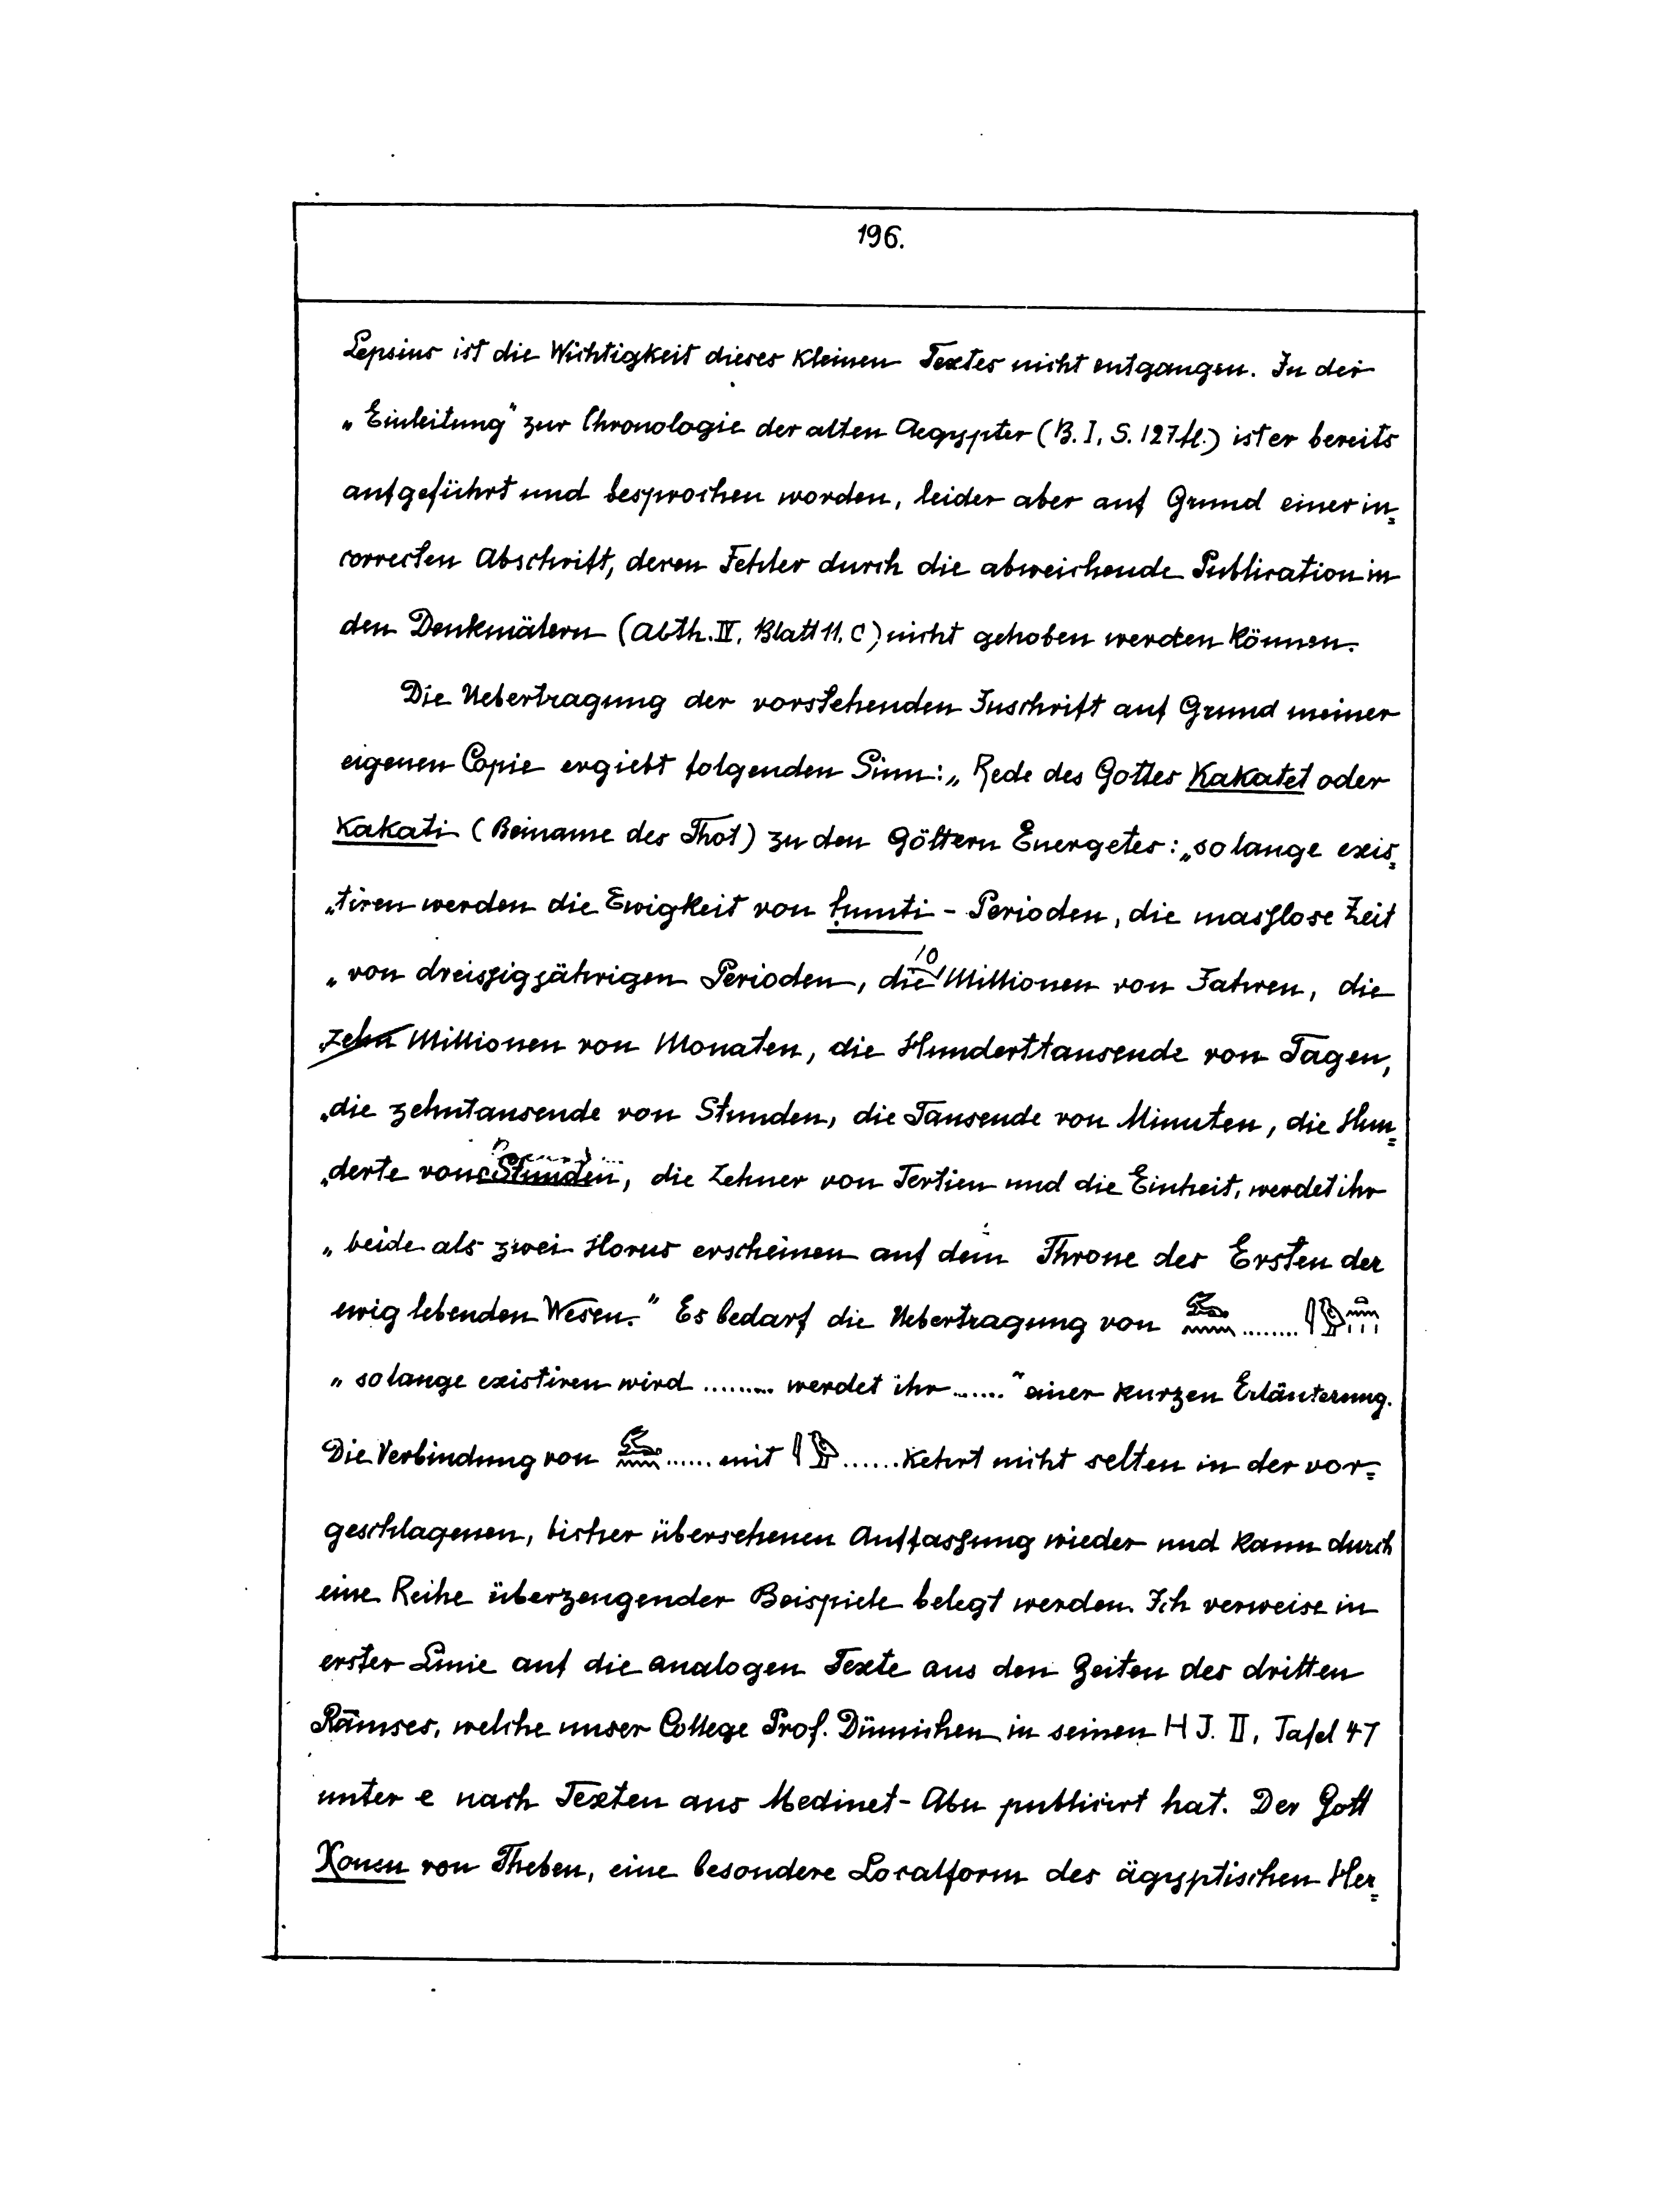 196.
Lepsius ist die Wichtigkeit dieses kleinen Textes nicht entgangen. In der
„Einleitung" zur Chronologie der alten Aegypter (B. I, S. 127 fl.) ist er bereits
aufgeführt und besprochen worden, leider aber auf Grund einer in=
correcten Abschrift, deren Fehler durch die abweichende Publication in
den Denkmälern (Abth. IV, Blatt 11. C) nicht gehoben werden können.
Die Uebertragung der vorstehenden Inschrift auf Grund meiner
eigenen Copie ergiebt folgenden Sinn: „Rede des Gottes Kakatet oder
Kakati (Beiname des Thot) zu den Göttern Euergetes: „so lange exis=
„tiren werden die Ewigkeit von ḥunti-Perioden, die masslose Zeit
10
„von dreissigjährigen Perioden, die Millionen von Jahren, die
„zehn Millionen von Monaten, die Hunderttausende von Tagen,
„die zehntausende von Stunden, die Tausende von Minuten, die Hun=
„derte von Stunden, die Zehner von Tertien und die Einheit, werdet ihr
„beide als zwei Horus erscheinen auf dem Throne des Ersten der
ewig lebenden Wesen." Es bedarf die Uebertragung von ........
„so lange existiren wird ......... werdet ihr ......" einer kurzen Erläuterung.
Die Verbindung von ...... mit ...... kehrt nicht selten in der vor=
geschlagenen, bisher übersehenen Auffassung wieder und kann durch
eine Reihe überzeugender Beispiele belegt werden. Ich verweise in
erster Linie auf die analogen Texte aus den Zeiten des dritten
Rāmses, welche unser College Prof. Dümichen in seinen H J. II, Tafel 47
unter e nach Texten aus Medinet-Abu publicirt hat. Der Gott
Xonsu von Theben, eine besondere Localform des ägyptischen Her=